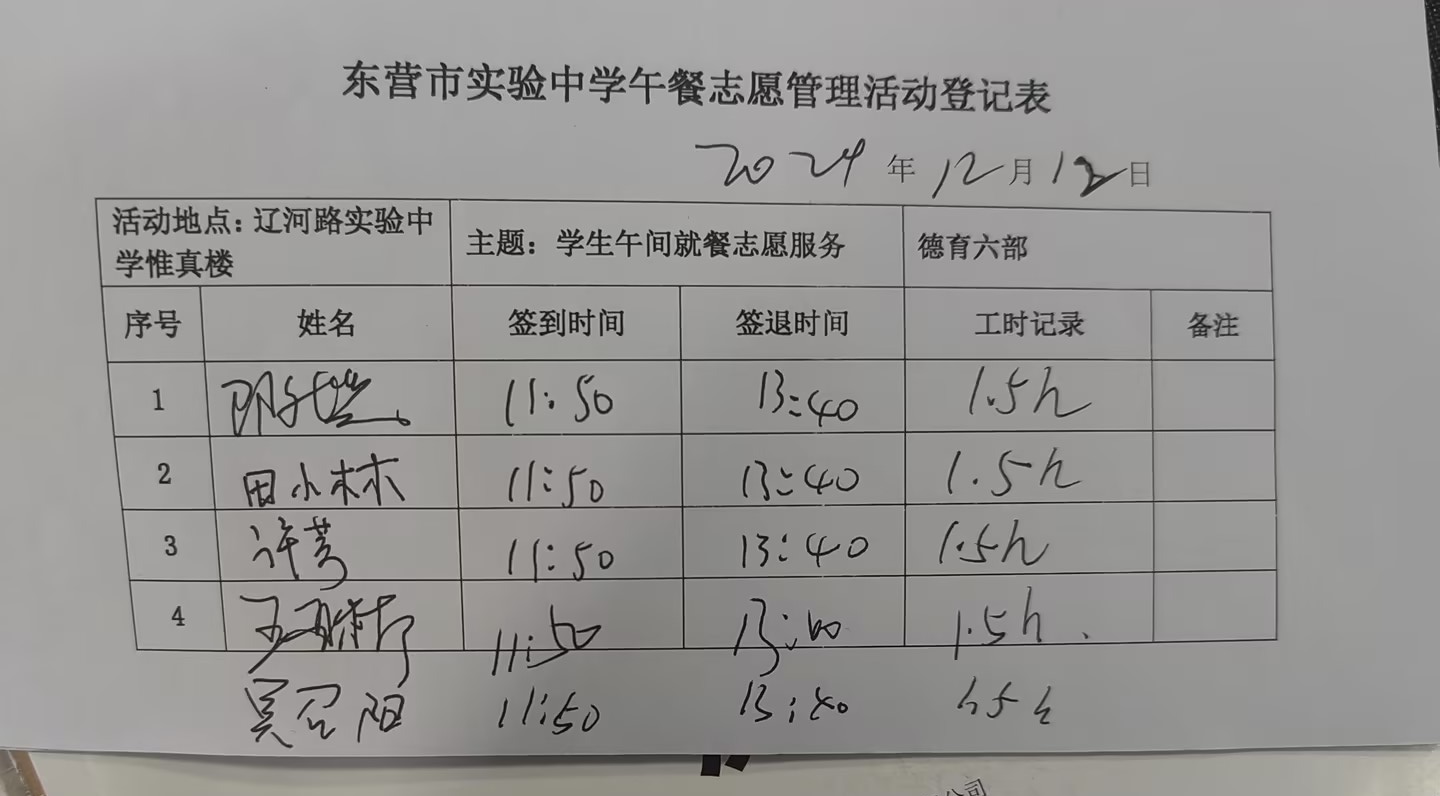 东营市实验中学午餐志愿管理活动登记表
2024年12月12日
活动地点：辽河路实验中学惟真楼 主题：学生午间就餐志愿服务 德育六部
序号 姓名 签到时间 签退时间 工时记录 备注
1 11:50 13:40 1.5h
2 田小林 11:50 13:40 1.5h
3 许 11:50 13:40 1.5h
4 王 11:50 1.5h
吴召阳 11:50 13:40 1.5h
公司